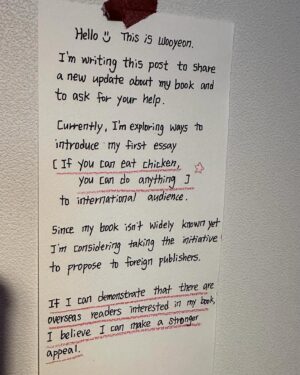 Hello This is Wooyeon.
I'm writing this post to share
a new update about my book and
to ask for your help.
Currently, I'm exploring ways to
introduce my first essay
[ If you can eat chicken,
you can do anything ]
to international audience.
Since my book isn't widely known yet
I'm considering taking the initiative
to propose to foreign publishers.
If I can demonstrate that there are
overseas readers interested in my book,
I believe I can make a stronger
appeal.